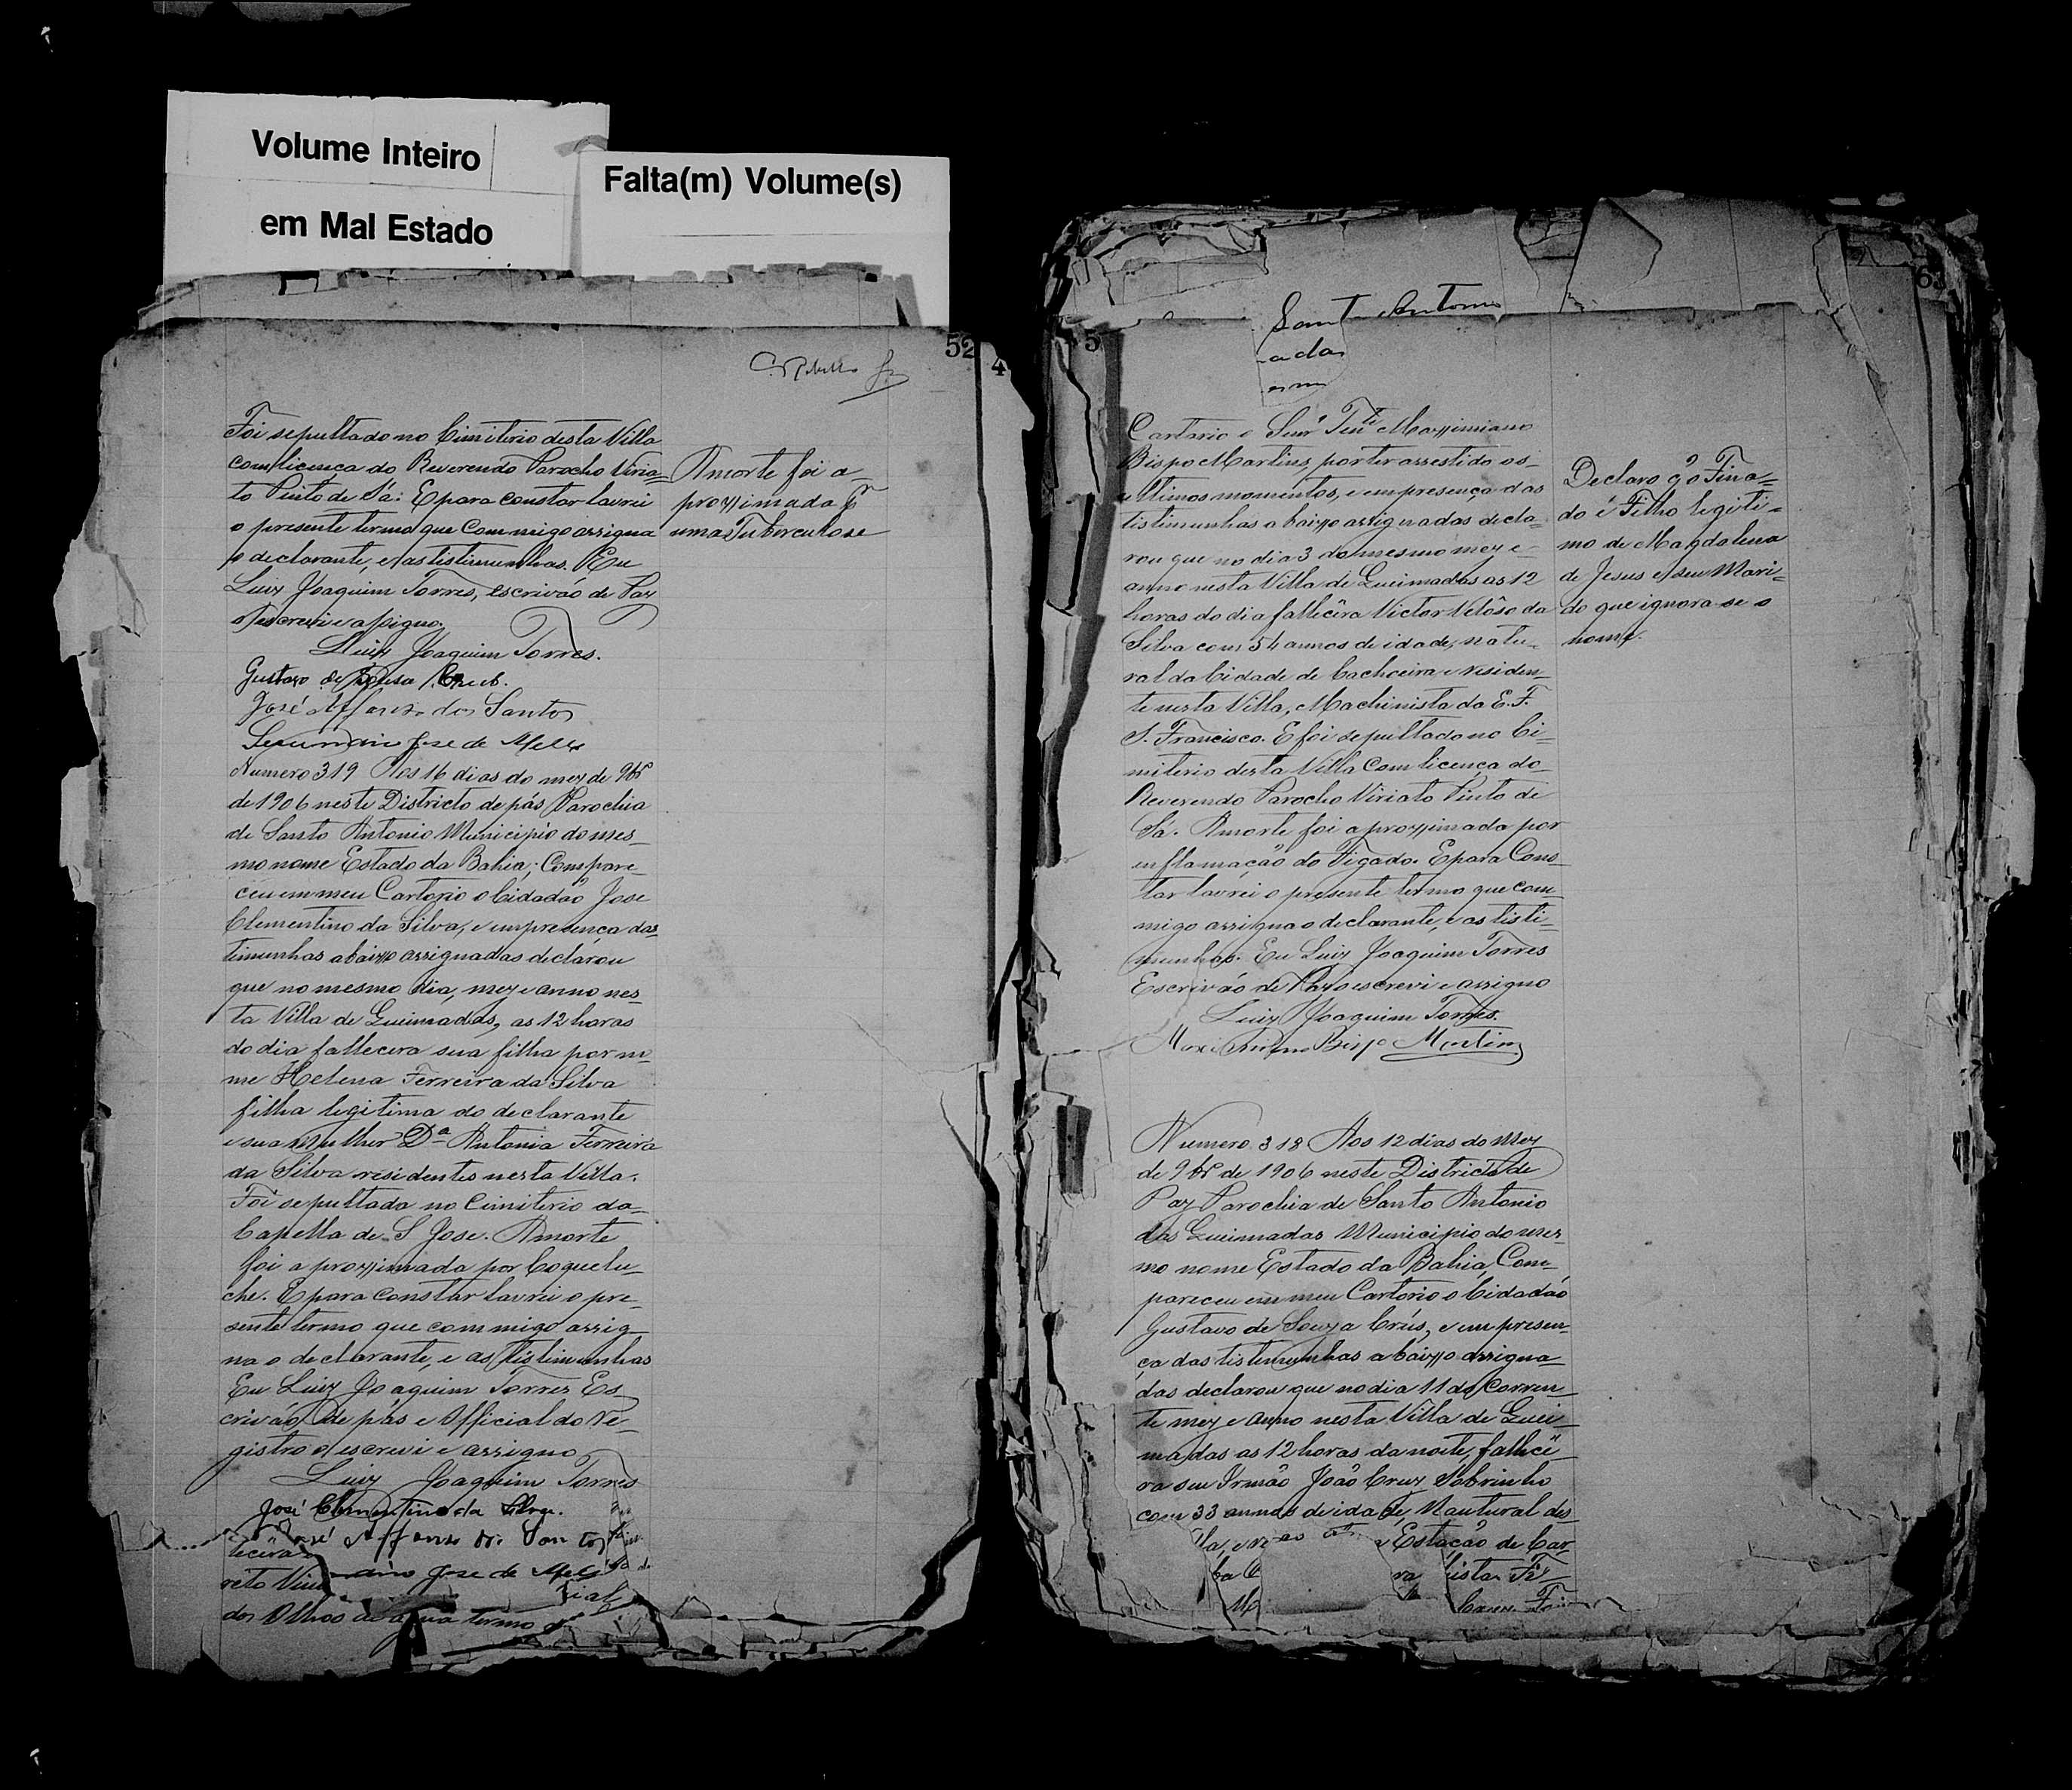 Volume Inteiro
em Mal Estado
Falta(m) Volume(s)
52
Foi sepultado no Cimiterio desta Villa
com licença do Reverendo Parocho Viria=
to Pinto de Sá. E para constar lavrei
o presente termo que commigo assigna
o declarante, e as tistimunhas. Eu
Luiz Joaquim Torres, escrivão de Paz
o escrevi e assigno.
Luiz Joaquim Torres.
Gustavo de Sousa
José Affonso dos Santos
Jose de Mello
A morte foi a-
proxximada pr
uma Tuberculose
Numero 319 Aos 16 dias do mez de 9br
de 1906 neste Districto de pás Parochia
de Santo Antonio Municipio do mes-
mo nome Estado da Bahia; Compare-
ceu em meu Cartorio o Cidadão Jose
Clementino da Silva, e em presença das
timunhas abaixxo assignadas declarou
que no mesmo dia, mez e anno nes-
ta Villa de Queimadas, as 12 horas
do dia fallecera sua filha por no-
me Helena Ferreira da Silva
filha legitima do declarante
e sua mulher Da Antonia Ferreira
da Silva residentes nesta Villa.
Foi sepultada no Cimiterio da-
Capella de S Jose. A morte
foi a proxximada por Coquelu-
che. E para constar lavrei o pre-
sente termo que commigo assig
na o declarante, e as tistimunhas
Eu Luiz Joaquim Torres Es-
crivão de pás e Official do Re-
gistro o escrevi e assigno
Luiz Joaquim Torres
José Clementino da Silva.
José Affonso dos Santos
Jose de Mello
dos Olhos de agua termo
4
5
63
Sant Antonio
Cartorio o Senr Tente Maxximiano
Bispo Martins, por ter assestido os-
ultimos momentos, e em presença das
tistimunhas a baixxo assignadas decla-
rou que no dia 3 do mesmo mez e-
anno nesta Villa de Queimadas as 12
horas do dia fallecêra Victor Velôso da
Silva com 54 annos de idade, natu-
ral da Cidade de Cachoeira e residen-
te nesta Villa, Machinista da E. F.
S. Francisco. E foi sepultado no Ci=
miterio desta Villa Com licença do-
Reverendo Parocho Viriato Pinto de
Sá. A morte foi a proxximada por
enflamação do Figado. E para Cons-
tar lavrei o presente termo que com
migo assigna o declarante, e as tisti-
munhas. Eu Luiz Joaquim Torres
Escrivão de Paz o escrevi e assigno
Luiz Joaquim Torres.
Maximiano Bispo Martins
Declaro qo Fina=
do é Filho legiti=
mo de Magdalena
de Jesus e seu Mari=
do que ignora-se o
nome.
Numero 318 Aos 12 dias do Mez
de 9br de 1906 neste Districto de
Paz Parochia de Santo Antonio
das Queimadas Municipio do mes-
mo nome Estado da Bahia, Com-
pareceu em meu Cartorio o Cidadão
Gustavo de Souza Crús, e em presen-
ça das tistimunhas a baixxo assigna
das declarou que no dia 11 do Corren-
te mez e anno nesta Villa de Quei-
madas as 12 horas da noite, fallecê-
ra seu Irmão João Cruz Sobrinho
com 33 annos de idade, Nautural des-
Estação de Car-